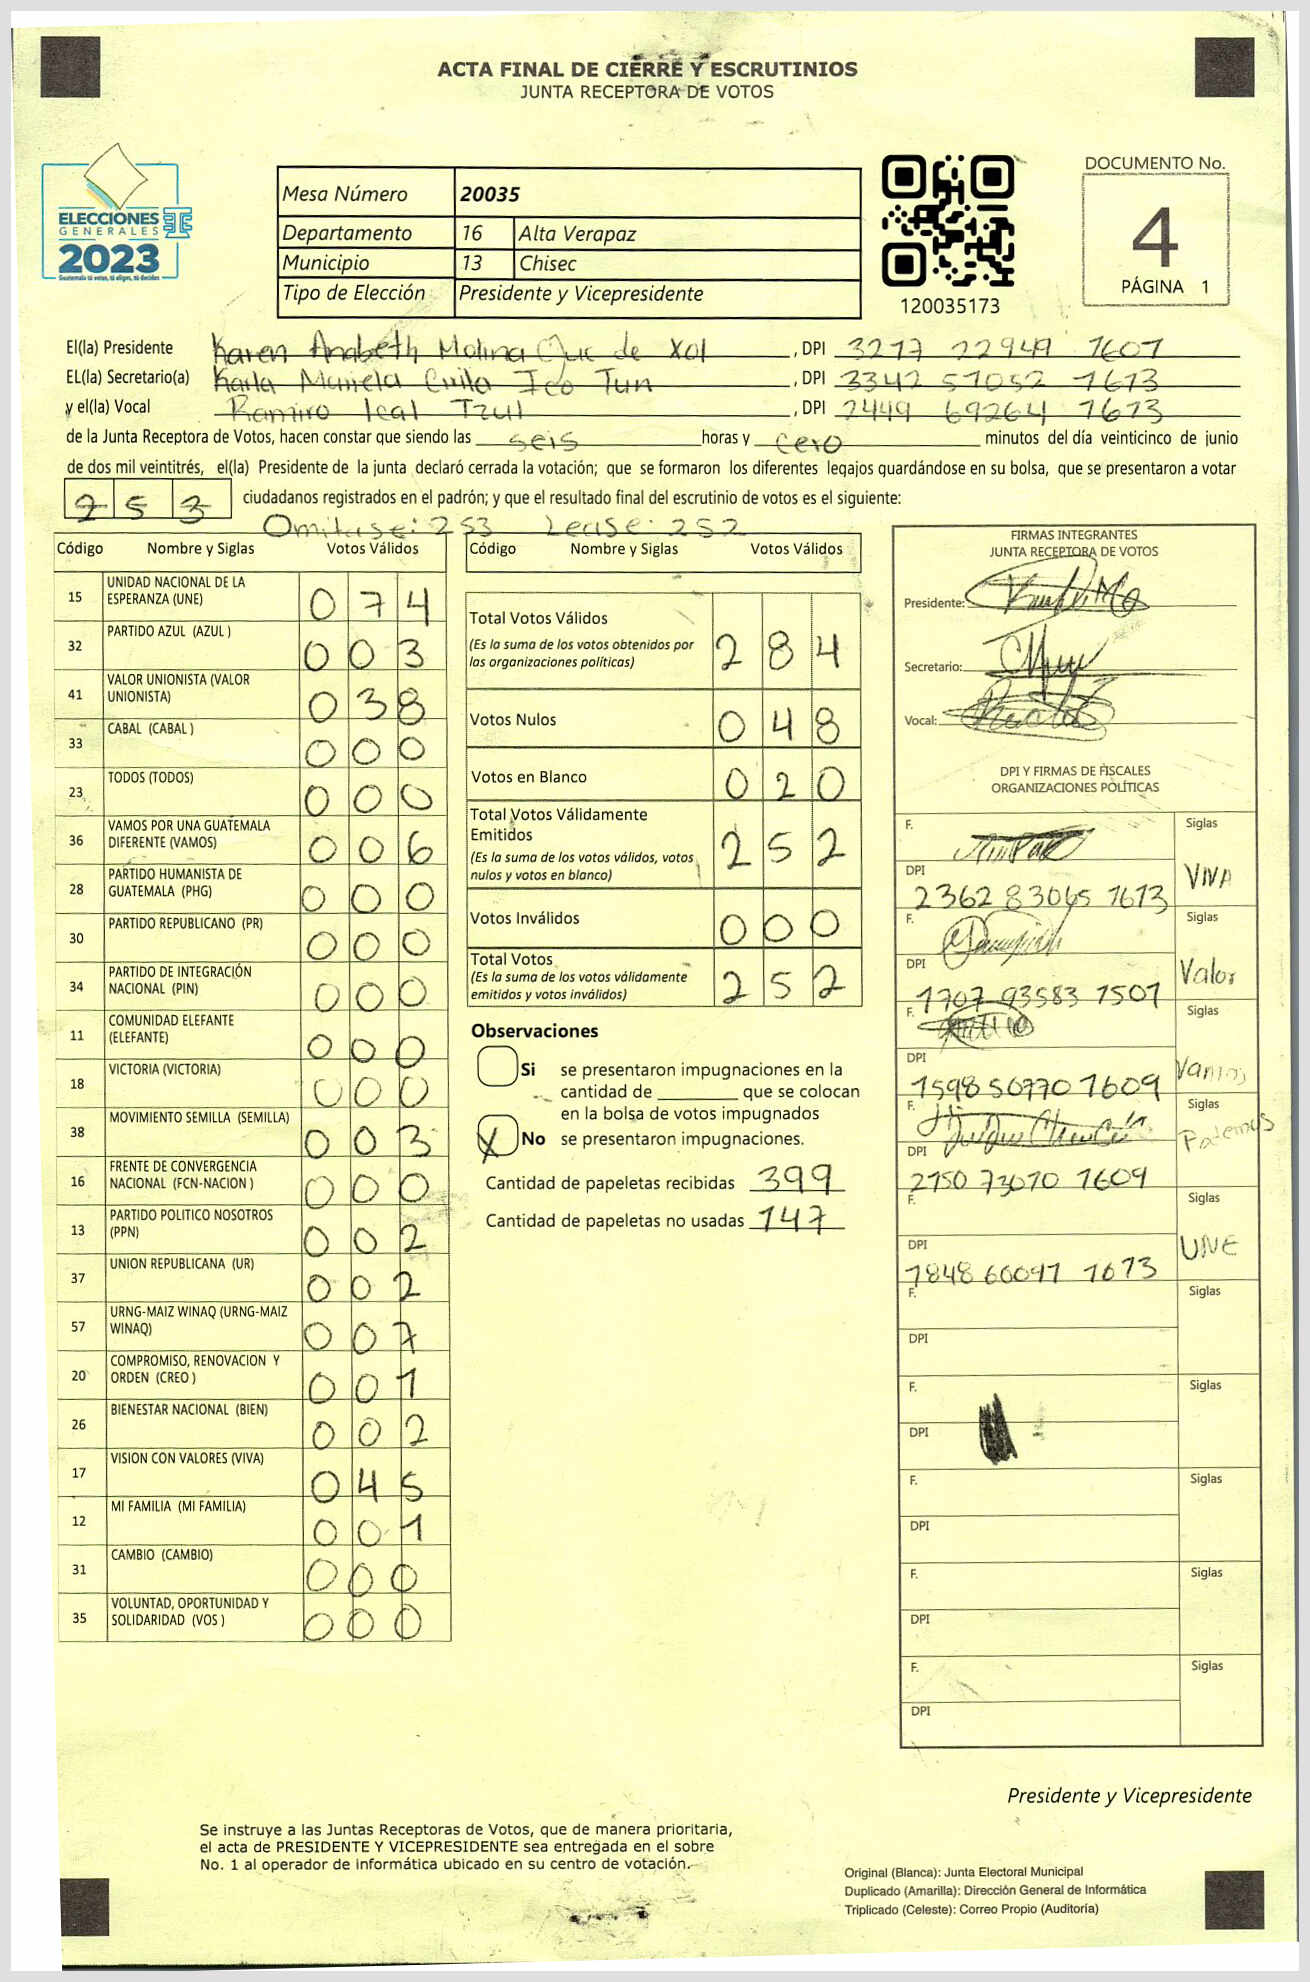 ACTA FINAL DE CIERRE Y ESCRUTINIOS
JUNTA RECEPTORA DE VOTOS
ELECCIONES
GENERALES
2023
Guatemala tú votas, tú eliges, tú decides
Mesa Número 20035
Departamento 16 Alta Verapaz
Municipio 13 Chisec
Tipo de Elección Presidente y Vicepresidente
120035173
DOCUMENTO No.
4
PÁGINA 1
El(la) Presidente Karen Anabeth Molina Que de Xol, DPI 3217 22949 1601
EL(la) Secretario(a) Karla Mariela Ico Tun, DPI 3342 57052 1613
y el(la) Vocal Ramiro Ical Tzul, DPI 2449 69264 1613
de la Junta Receptora de Votos, hacen constar que siendo las seis horas y cero minutos del día veinticinco de junio
de dos mil veintitrés, el(la) Presidente de la junta declaró cerrada la votación; que se formaron los diferentes legajos guardándose en su bolsa, que se presentaron a votar
253 ciudadanos registrados en el padrón; y que el resultado final del escrutinio de votos es el siguiente:
Omitase: 253 Lease: 252
Código Nombre y Siglas Votos Válidos
15 UNIDAD NACIONAL DE LA ESPERANZA (UNE) 074
32 PARTIDO AZUL (AZUL ) 003
41 VALOR UNIONISTA (VALOR UNIONISTA) 038
33 CABAL (CABAL ) 000
23 TODOS (TODOS) 000
36 VAMOS POR UNA GUATEMALA DIFERENTE (VAMOS) 006
28 PARTIDO HUMANISTA DE GUATEMALA (PHG) 000
30 PARTIDO REPUBLICANO (PR) 000
34 PARTIDO DE INTEGRACIÓN NACIONAL (PIN) 000
11 COMUNIDAD ELEFANTE (ELEFANTE) 000
18 VICTORIA (VICTORIA) 000
38 MOVIMIENTO SEMILLA (SEMILLA) 003
16 FRENTE DE CONVERGENCIA NACIONAL (FCN-NACION ) 000
13 PARTIDO POLITICO NOSOTROS (PPN) 002
37 UNION REPUBLICANA (UR) 002
57 URNG-MAIZ WINAQ (URNG-MAIZ WINAQ) 007
20 COMPROMISO, RENOVACION Y ORDEN (CREO ) 001
26 BIENESTAR NACIONAL (BIEN) 002
17 VISION CON VALORES (VIVA) 045
12 MI FAMILIA (MI FAMILIA) 001
31 CAMBIO (CAMBIO) 000
35 VOLUNTAD, OPORTUNIDAD Y SOLIDARIDAD (VOS ) 000
Código Nombre y Siglas Votos Válidos
Total Votos Válidos
(Es la suma de los votos obtenidos por las organizaciones políticas) 284
Votos Nulos 048
Votos en Blanco 020
Total Votos Válidamente Emitidos
(Es la suma de los votos válidos, votos nulos y votos en blanco) 252
Votos Inválidos 000
Total Votos
(Es la suma de los votos válidamente emitidos y votos inválidos) 252
Observaciones
Si se presentaron impugnaciones en la
cantidad de ________ que se colocan
en la bolsa de votos impugnados
X No se presentaron impugnaciones.
Cantidad de papeletas recibidas 399
Cantidad de papeletas no usadas 147
FIRMAS INTEGRANTES
JUNTA RECEPTORA DE VOTOS
Presidente:
Secretario:
Vocal:
DPI Y FIRMAS DE FISCALES
ORGANIZACIONES POLÍTICAS
F. Siglas
DPI 2362 83065 1613 VIVA
F. Siglas
DPI 1707 93583 1501 Valor
F. Siglas
DPI 1598 50770 1609 Vamos
F. Siglas
DPI 2150 73070 1609 Podemos
F. Siglas
DPI 1848 66097 1613 UNE
F. Siglas
DPI
F. Siglas
DPI
F. Siglas
DPI
F. Siglas
DPI
F. Siglas
DPI
Presidente y Vicepresidente
Se instruye a las Juntas Receptoras de Votos, que de manera prioritaria,
el acta de PRESIDENTE Y VICEPRESIDENTE sea entregada en el sobre
No. 1 al operador de informática ubicado en su centro de votación.
Original (Blanca): Junta Electoral Municipal
Duplicado (Amarilla): Dirección General de Informática
Triplicado (Celeste): Correo Propio (Auditoría)